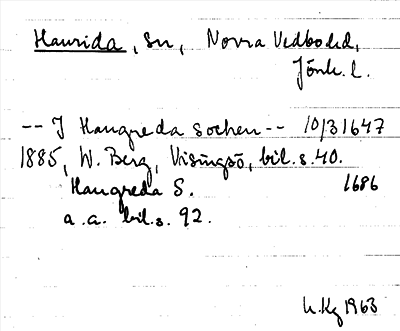 Haurida, sn, Norra Vedbo hd,
Jönk. l.
-- J Haugreda sochen -- 10/3 1647
1885, W. Berg, Visingsö, bil. s. 40.
Haugreda S. 1686
a. a. bil. s. 92.
1963